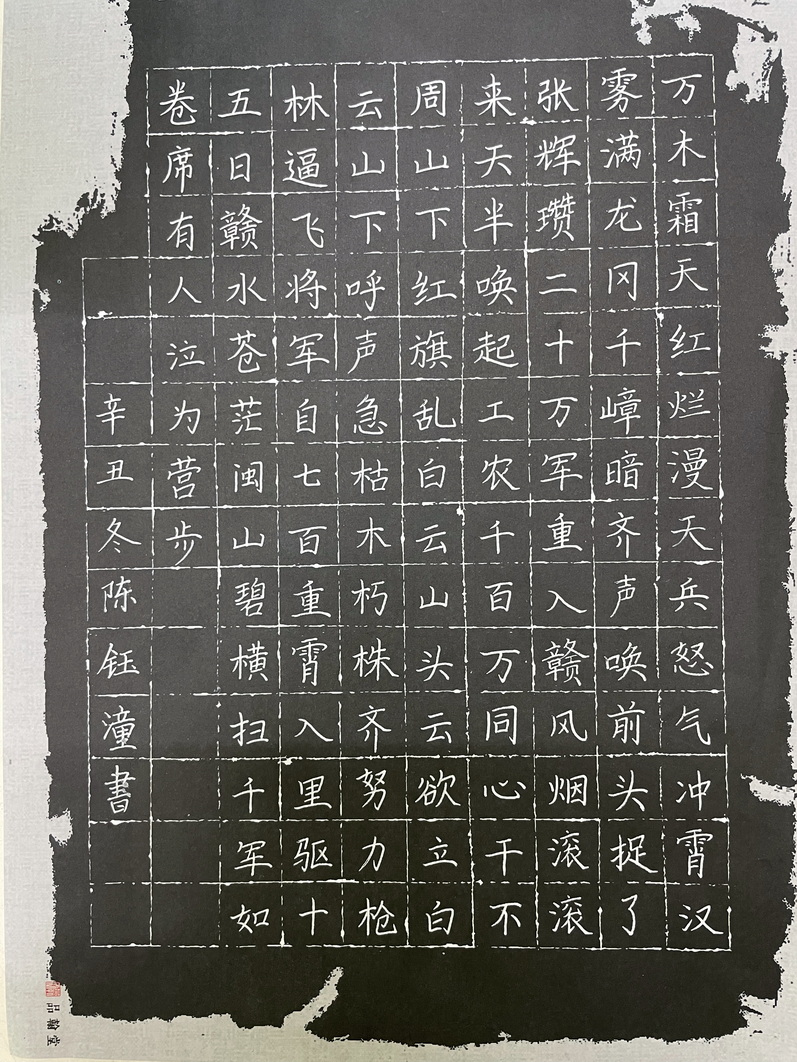 万木霜天红烂漫天兵怒气冲霄汉
雾满龙冈千嶂暗齐声唤前头捉了
张辉瓒二十万军重入赣风烟滚滚
来天半唤起工农千百万同心干不
周山下红旗乱白云山头云欲立白
云山下呼声急枯木朽株齐努力枪
林逼飞将军自七百重霄入里驱十
五日赣水苍茫闽山碧横扫千军如
卷席有人泣为营步
辛丑冬陈钰潼書
品翰堂